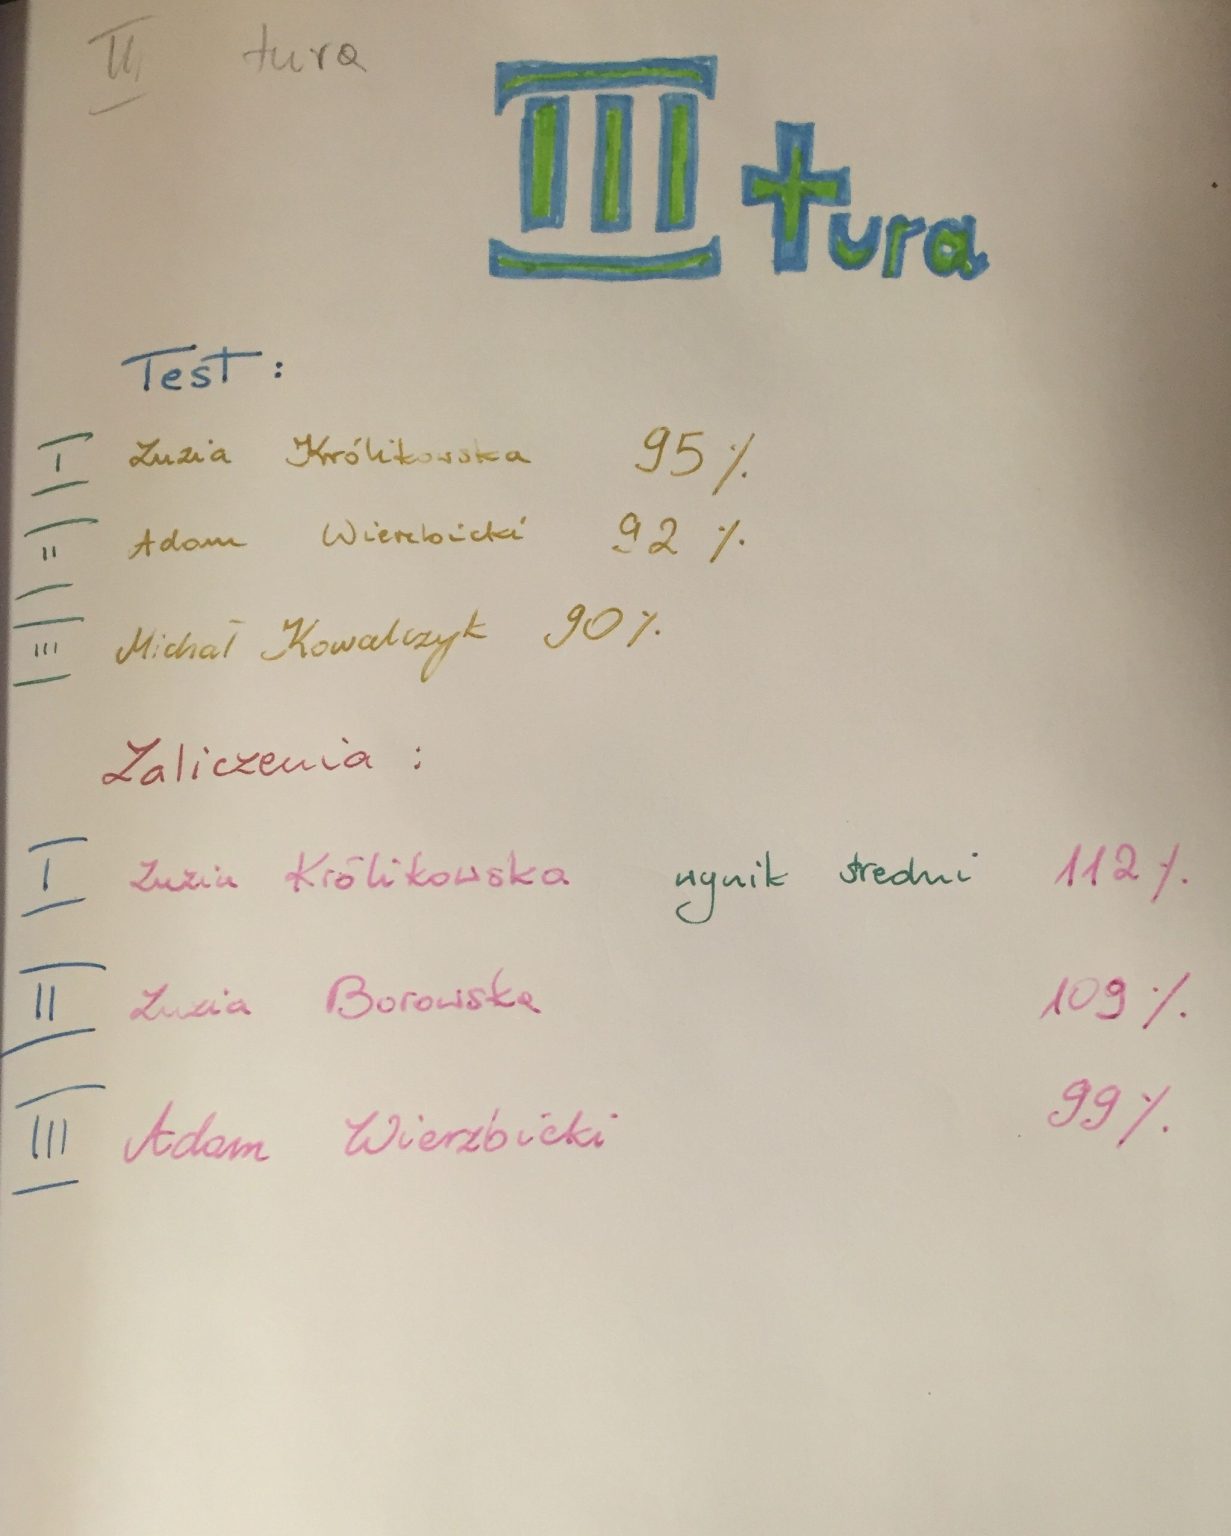 III tura
III tura
Test:
I Zuzia Królikowska 95%
II Adam Wierzbicki 92%
III Michał Kowalczyk 90%
Zaliczenia:
I Zuzia Królikowska wynik średni 112%
II Zuzia Borowska 109%
III Adam Wierzbicki 99%